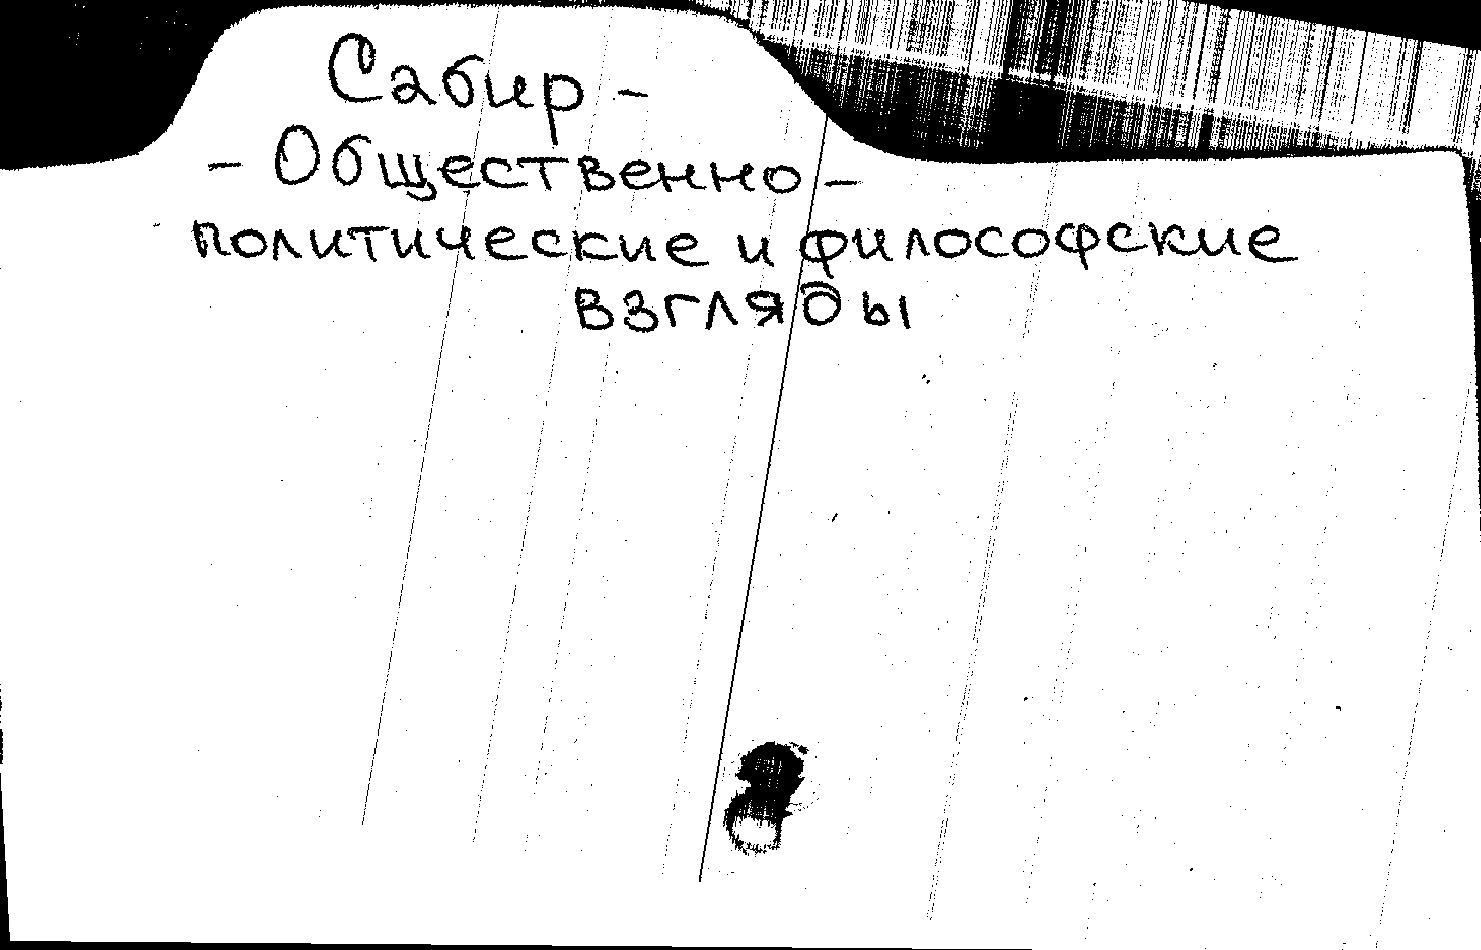 Сабир -
- Общественно -
политические и философские
взгляды